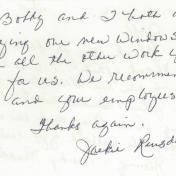 Bobby and I both a
ying our new windows
all the other work y
for us. We recommen
and your employees
Thanks again.
Jackie